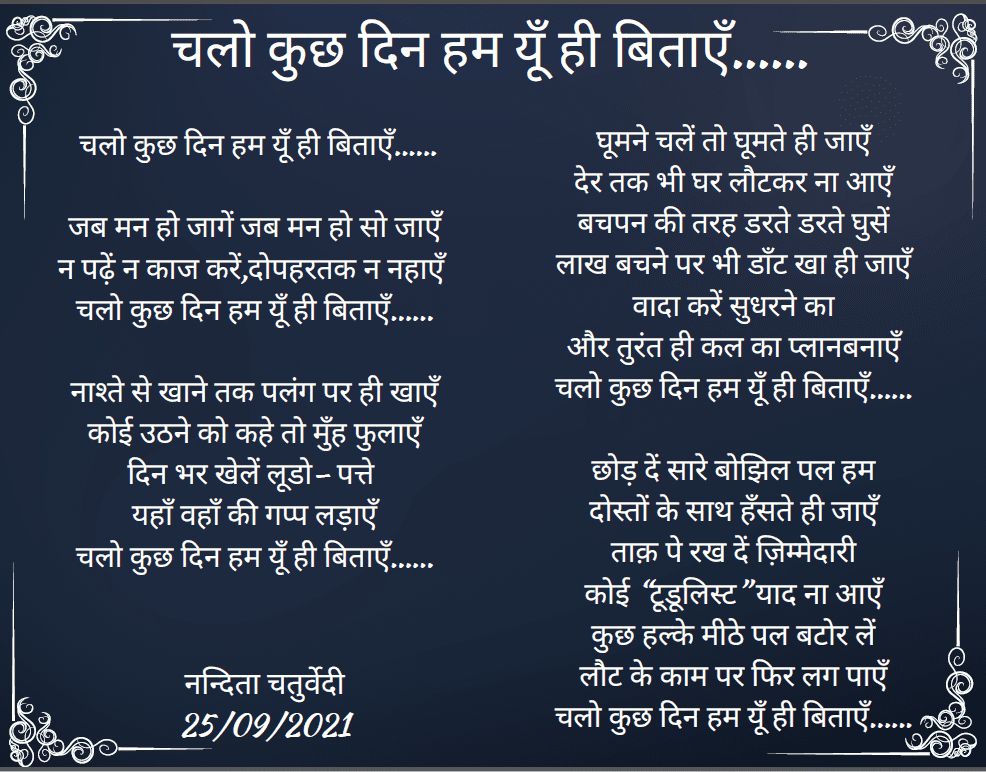 चलो कुछ दिन हम यूँ ही बिताएँ......
चलो कुछ दिन हम यूँ ही बिताएँ......
जब मन हो जागें जब मन हो सो जाएँ
न पढ़ें न काज करें,दोपहरतक न नहाएँ
चलो कुछ दिन हम यूँ ही बिताएँ......
नाश्ते से खाने तक पलंग पर ही खाएँ
कोई उठने को कहे तो मुँह फुलाएँ
दिन भर खेलें लूडो- पत्ते
यहाँ वहाँ की गप्प लड़ाएँ
चलो कुछ दिन हम यूँ ही बिताएँ......
नन्दिता चतुर्वेदी
25/09/2021
घूमने चलें तो घूमते ही जाएँ
देर तक भी घर लौटकर ना आएँ
बचपन की तरह डरते डरते घुसें
लाख बचने पर भी डाँट खा ही जाएँ
वादा करें सुधरने का
और तुरंत ही कल का प्लानबनाएँ
चलो कुछ दिन हम यूँ ही बिताएँ......
छोड़ दें सारे बोझिल पल हम
दोस्तों के साथ हँसते ही जाएँ
ताक़ पे रख दें ज़िम्मेदारी
कोई “टूडूलिस्ट”याद ना आएँ
कुछ हल्के मीठे पल बटोर लें
लौट के काम पर फिर लग पाएँ
चलो कुछ दिन हम यूँ ही बिताएँ......